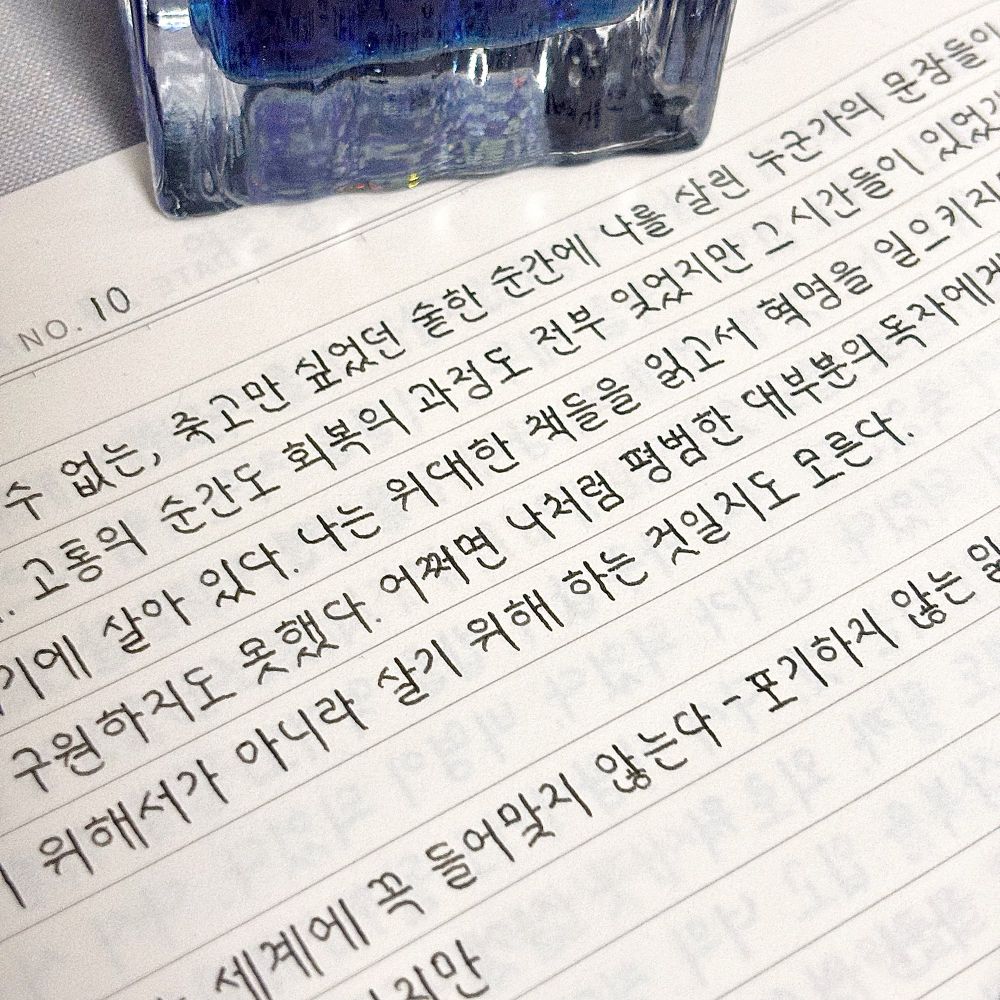 NO. 10
수 없는, 죽고만 싶었던 숱한 순간에 나를 살린 누군가의 문장들이
고통의 순간도 회복의 과정도 전부 잊었지만 그 시간들이 있었기
기에 살아 있다. 나는 위대한 책들을 읽고서 혁명을 일으키지
구원하지도 못했다. 어쩌면 나처럼 평범한 대부분의 독자에게
위해서가 아니라 살기 위해 하는 것일지도 모른다.
세계에 꼭 들어맞지 않는다 - 포기하지 않는
지만